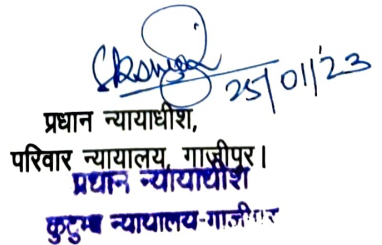 25/01/'23
प्रधान न्यायाधीश,
परिवार न्यायालय, गाज़ीपुर।
प्रधान न्यायाधीश
कुटुम्ब न्यायालय-गाजीपुर